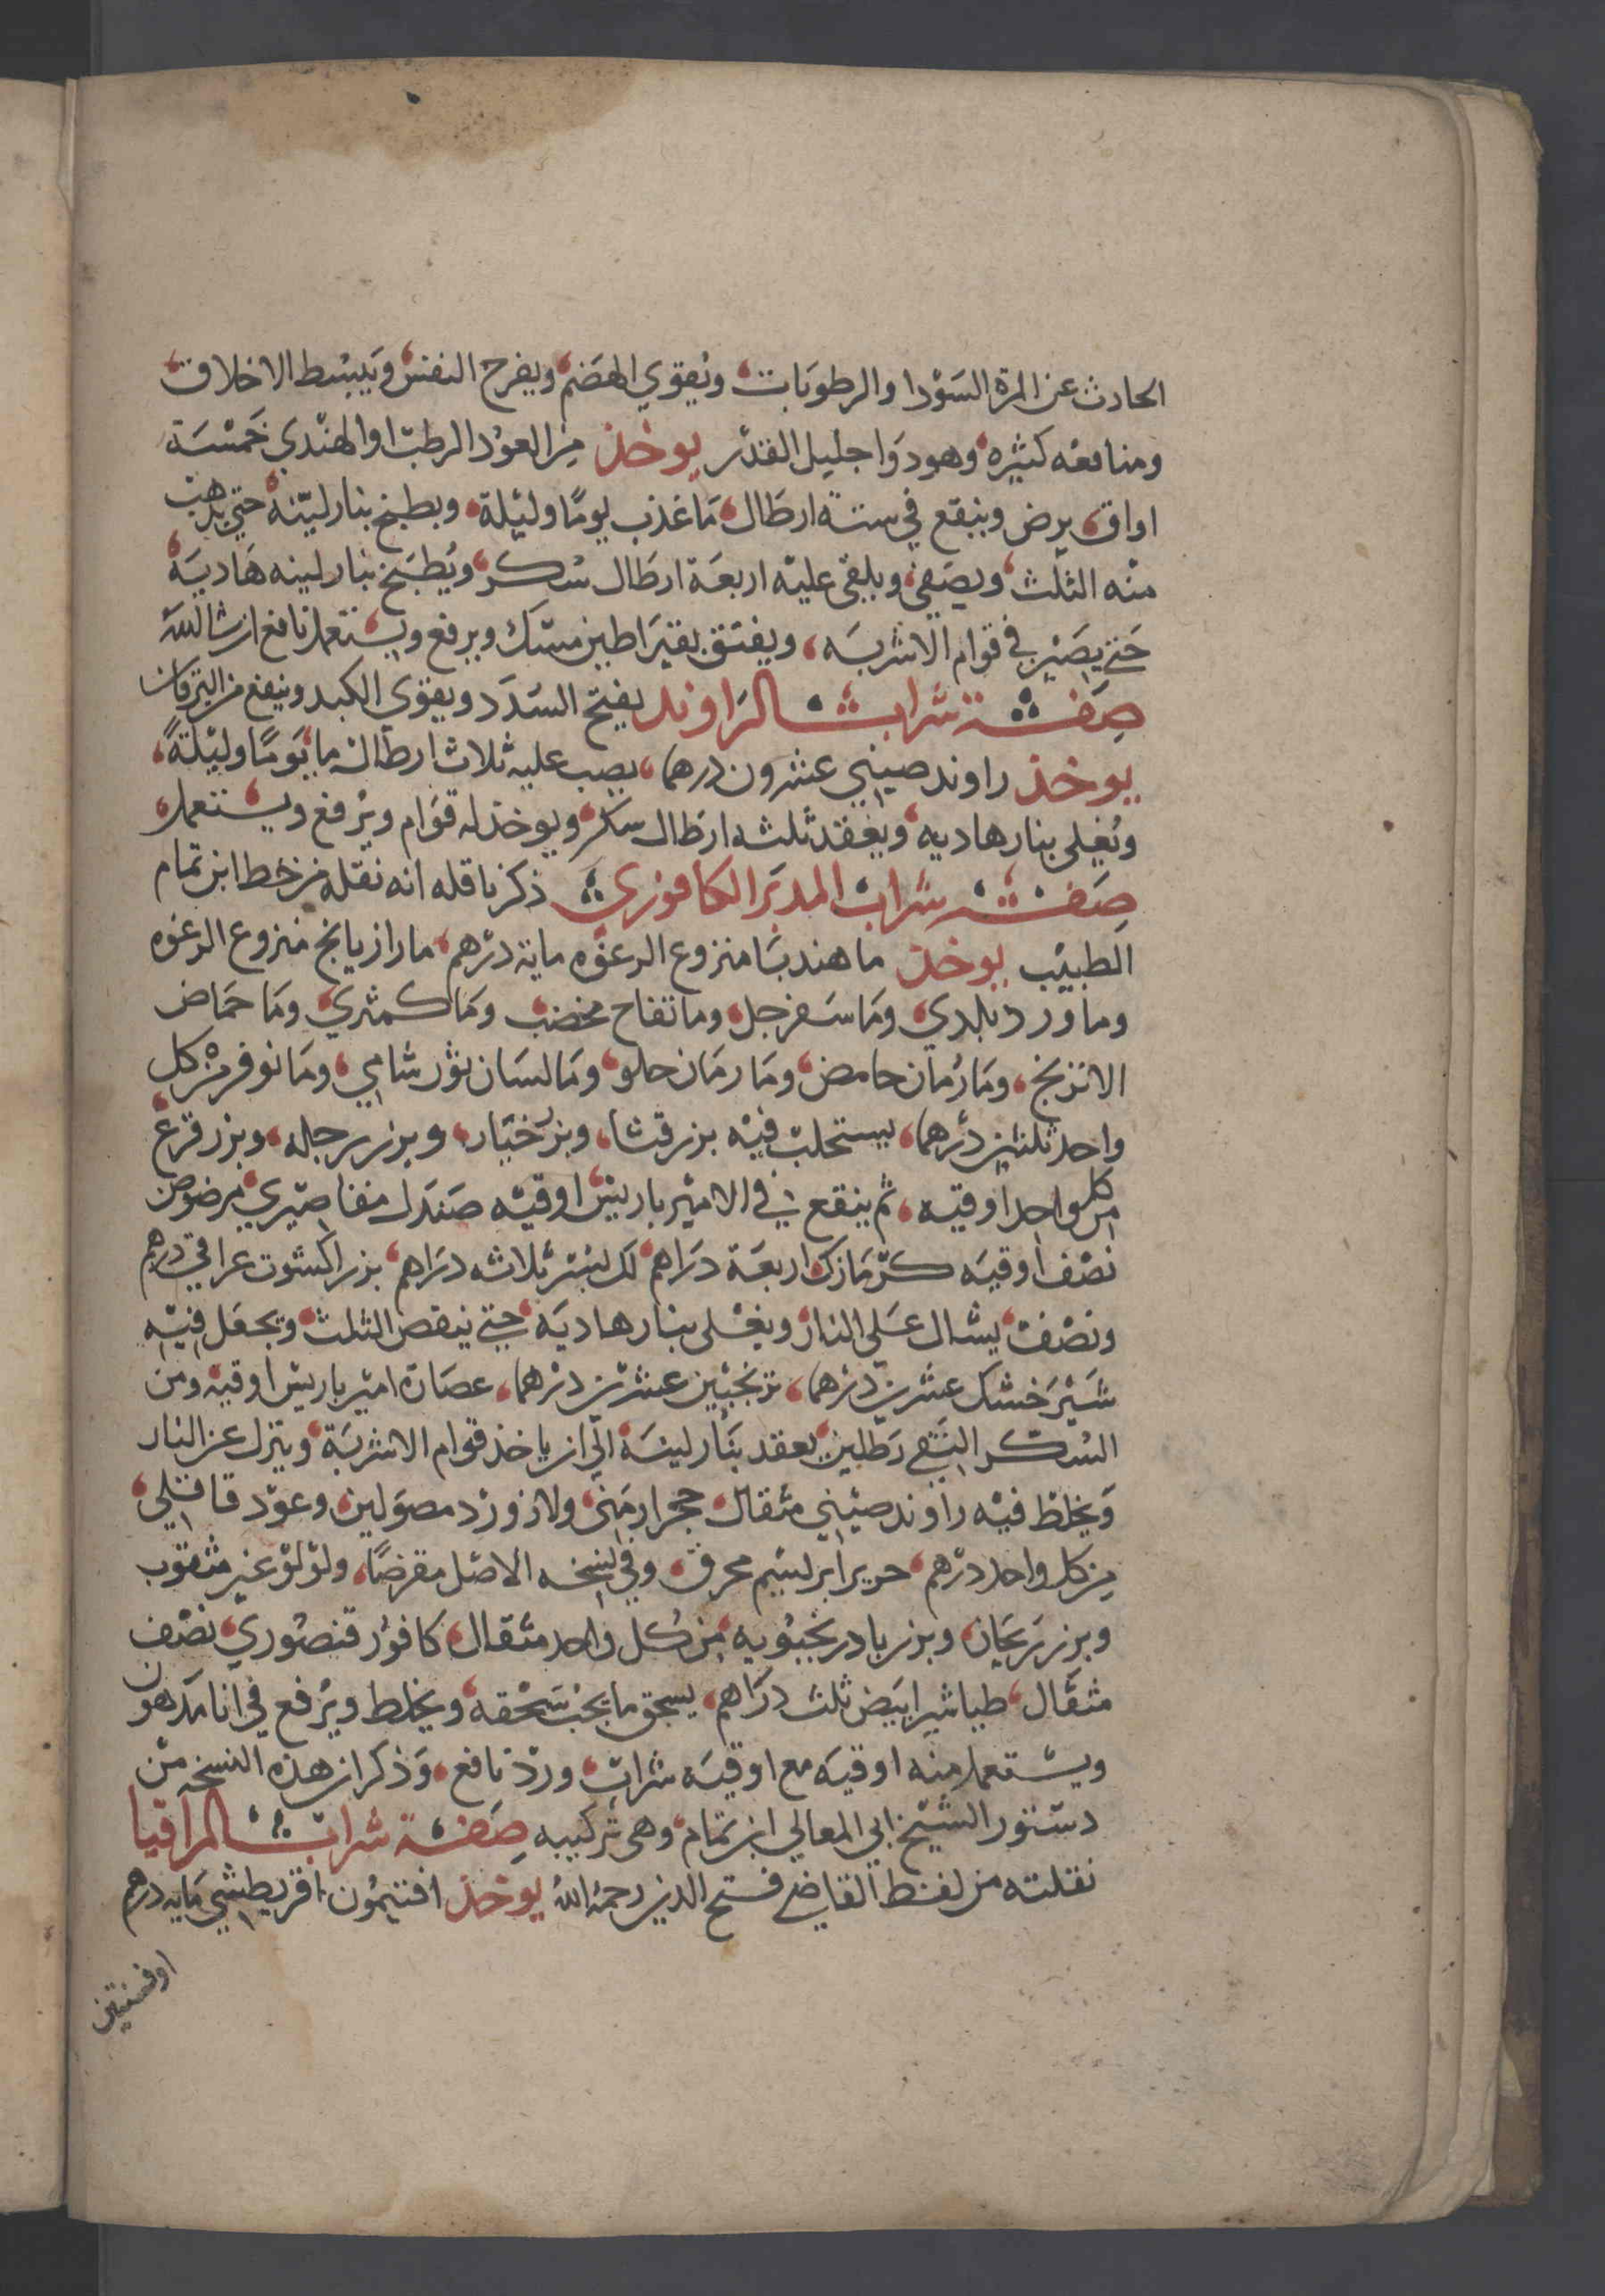 الحادث عن المرة السَوْدا والرطوبَات ويُقوي الهضَم ويفرح النفس ويَبسُط الاخلاق
ومنافعه كثيره وهو دَوا جليل القدْر يوخذ مِن العوْد الرطب او الهنْدي خمْسَة
اواق يرض وينقع في ستة ارطَال مَا عَذب يومًا وليْلة ويطبخ بنار ليّنة حتي يذهب
منْه الثلث ويصَفي ويلقى عليْه اربعَة ارطَال سُكر ويُطبَخ بنار لينه هَاديَة
حَتي يصَيْر في قوام الاشربَه ويفتق بقيرَاطين مسْك ويرفع ويستعمل نافع ان شا الله
صفة شراب الرَاوند يفتح السَدَد ويقوي الكبد وينفع من اليرقان
يوخذ راوند صيني عشرون درهما يصب عليه ثلاث ارطال ما يَومًا وليْلةً
ويُغلى بنار هاديه ويعْقد بثلثه ارطَال سكر ويوخذ له قوَام ويرْفع ويستعمل
صفة شراب المدبَر الكافوري ذكر ناقله انه نقله من خط ابن تمام
الطبيْب يوخذ ما هندبَا منزوع الرغوه ماية درْهم ما رازيانج منزوع الرغوه
وما ورد بلدي ومَا سَفرجل وما تفاح مخضب ومَا كمثري ومَا حمَاض
الاترنج ومَا رُمان حامض ومَا رمَان حلو ومَا لسَان ثوْر شامي ومَا نوفر من كل
واحد ثلثين درْهما يستحلب فيْه بزر قثا وبزر خيَار وبزر رجله وبزر قرع
من كل واحد اوقيه ثم ينقع في الاميْر باريس اوقيْه صَندَل مقاصيري مرضوض
نصْف اوقيَه كزْمَازك اربعَة دَراهم لك لبسْر ثلاثه درَاهم بزر اكشوت عراقي درهم
ونصْف يشال عَلي النار ويغلى بنار هاديَه حتي ينقص الثلث ويجعَل فيْه
شيْرَخشك عشرين درْهما ترنجبْين عشرْين درْهما عصَارة اميْر باريس اوقية ومن
السُكر النقي رَطلين يعقد بنَار لينَة الي ان ياخذ قوام الاشربَة وينزل عن النار
وَيخلط فيْه راوند صيْني مثقال حجر ارمَني ولازورْد مصوَلين وعوْد قاقلي
من كل واحد درْهم حرير ابريسَيم محرق وفي نسخه الاصْل مقرضًا ولوْلوْ غير مثقوب
وبزر ريحَان وبزر بادرنجبُويه من كُل واحد مثقال كافوْر قنصُوري نصْف
مثقَال طباشير ابيَض ثلث دراهم يسحق ما يجب سَحْقه ويخلط ويرْفع في انا مَدهون
ويسْتعمل منْه اوقيَه مع اوقيَه شراب ورد نافع وَذكر ان هذه النسخه من
دسْتور الشيْخ ابي المعالي ابن تمام وهي تركيبه صفة شراب المراقيا
نقلته من لفظ القاضي فتح الدين رحمه الله يوخذ افتيمُون اقريطشي مَايه درهم
اوفسنتين